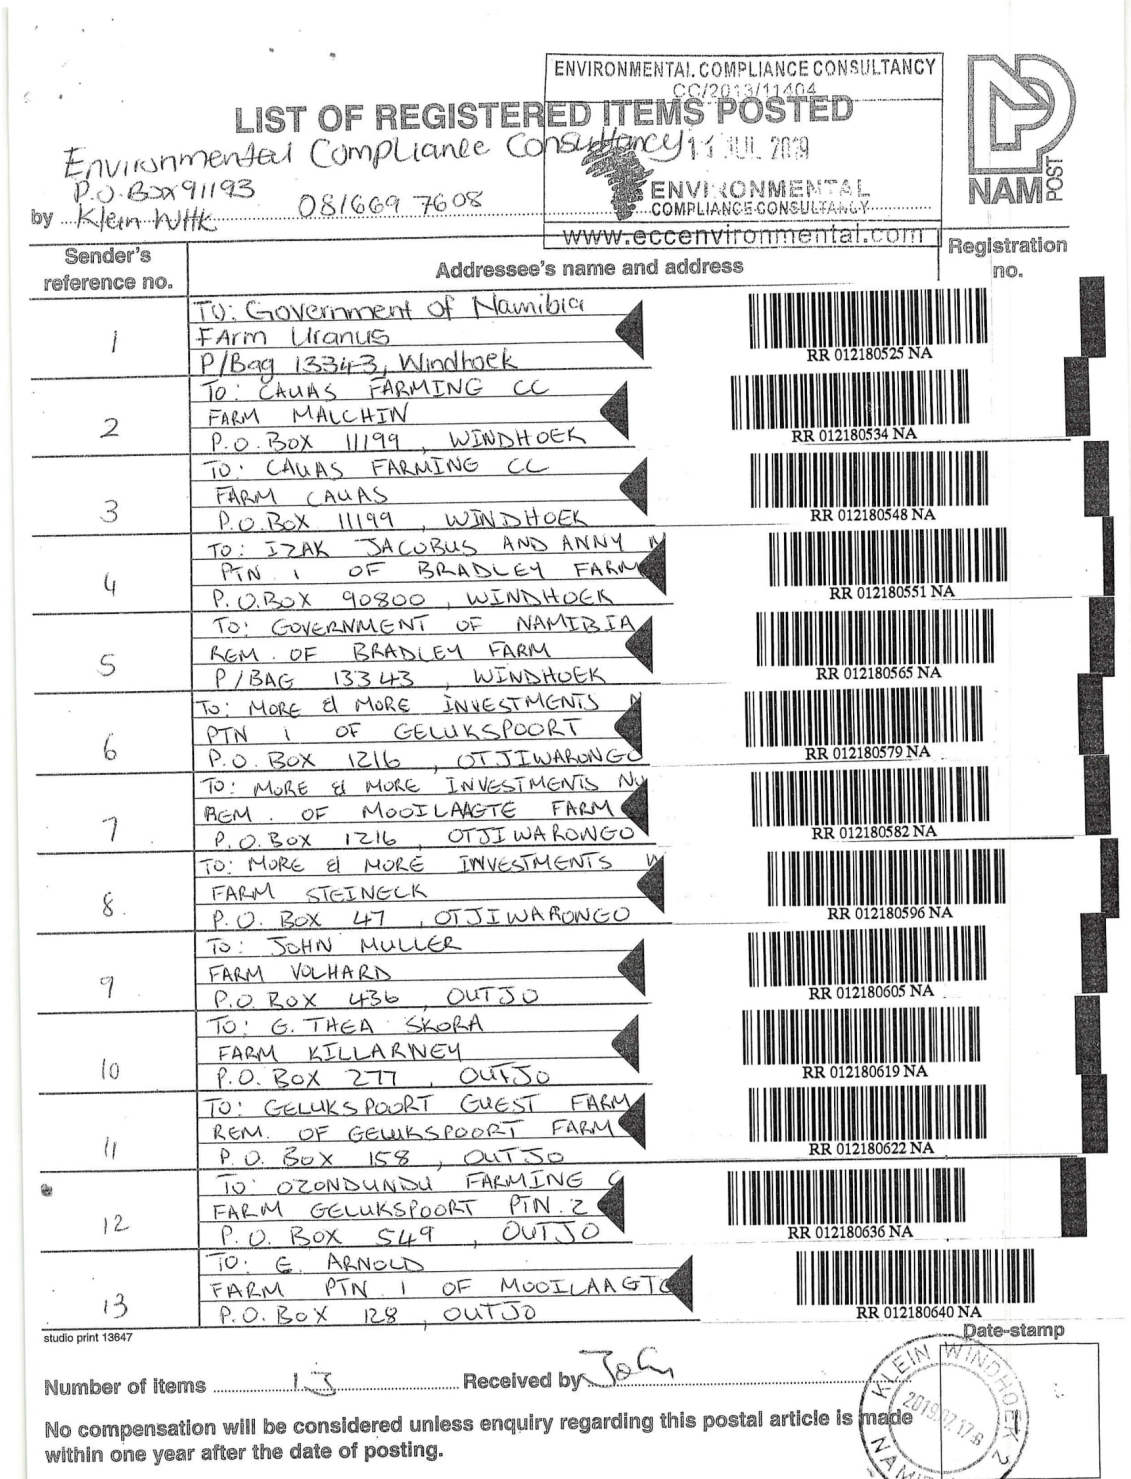 ENVIRONMENTAL COMPLIANCE CONSULTANCY
CC/2013/11404
LIST OF REGISTERED ITEMS POSTED
Environmental Compliance Consultancy 11 JUL 2019
P.O. Box 91193
by Klein WHk 081669 7608
ENVIRONMENTAL
COMPLIANCE CONSULTANCY
www.eccenvironmental.com
NAM POST
Sender's reference no.
Addressee's name and address
Registration no.
1
To: Government of Namibia
FArm Uranus
P/Bag 13343, Windhoek
RR 012180525 NA
2
To: CAUAS FARMING CC
FARM MALCHIN
P.O. Box 11199, WINDHOEK
RR 012180534 NA
3
To: CAUAS FARMING CC
FARM CAUAS
P.O. Box 11199, WINDHOEK
RR 012180548 NA
4
To: IZAK JACOBUS AND ANNY
PTN 1 OF BRADLEY FARM
P.O. Box 90800, WINDHOEK
RR 012180551 NA
5
To: GOVERNMENT OF NAMIBIA
REM. OF BRADLEY FARM
P/BAG 13343, WINDHOEK
RR 012180565 NA
6
To: MORE & MORE INVESTMENTS
PTN 1 OF GELUKSPOORT
P.O. Box 1216, OTJIWARONGO
RR 012180579 NA
7
To: MORE & MORE INVESTMENTS
REM. OF MOOILAAGTE FARM
P.O. Box 1216, OTJIWARONGO
RR 012180582 NA
8.
To: MORE & MORE INVESTMENTS
FARM STEINECK
P.O. Box 47, OTJIWARONGO
RR 012180596 NA
9
To: JOHN MULLER
FARM VOLHARD
P.O. Box 436, OUTJO
RR 012180605 NA
10
To: G. THEA SKORA
FARM KILLARNEY
P.O. Box 277, OUTJO
RR 012180619 NA
11
To: GELUKSPOORT GUEST FARM
REM. OF GELUKSPOORT FARM
P.O. Box 158, OUTJO
RR 012180622 NA
12
To: OZONDUNDU FARMING
FARM GELUKSPOORT PTN. 2
P.O. Box 549, OUTJO
RR 012180636 NA
13
To: E. ARNOLD
FARM PTN 1 OF MOOILAAGTE
P.O. Box 128, OUTJO
RR 012180640 NA
studio print 13647
Date-stamp
Number of items 13 Received by
KLEIN WINDHOEK 2
2019.07.17-6
No compensation will be considered unless enquiry regarding this postal article is made
within one year after the date of posting.